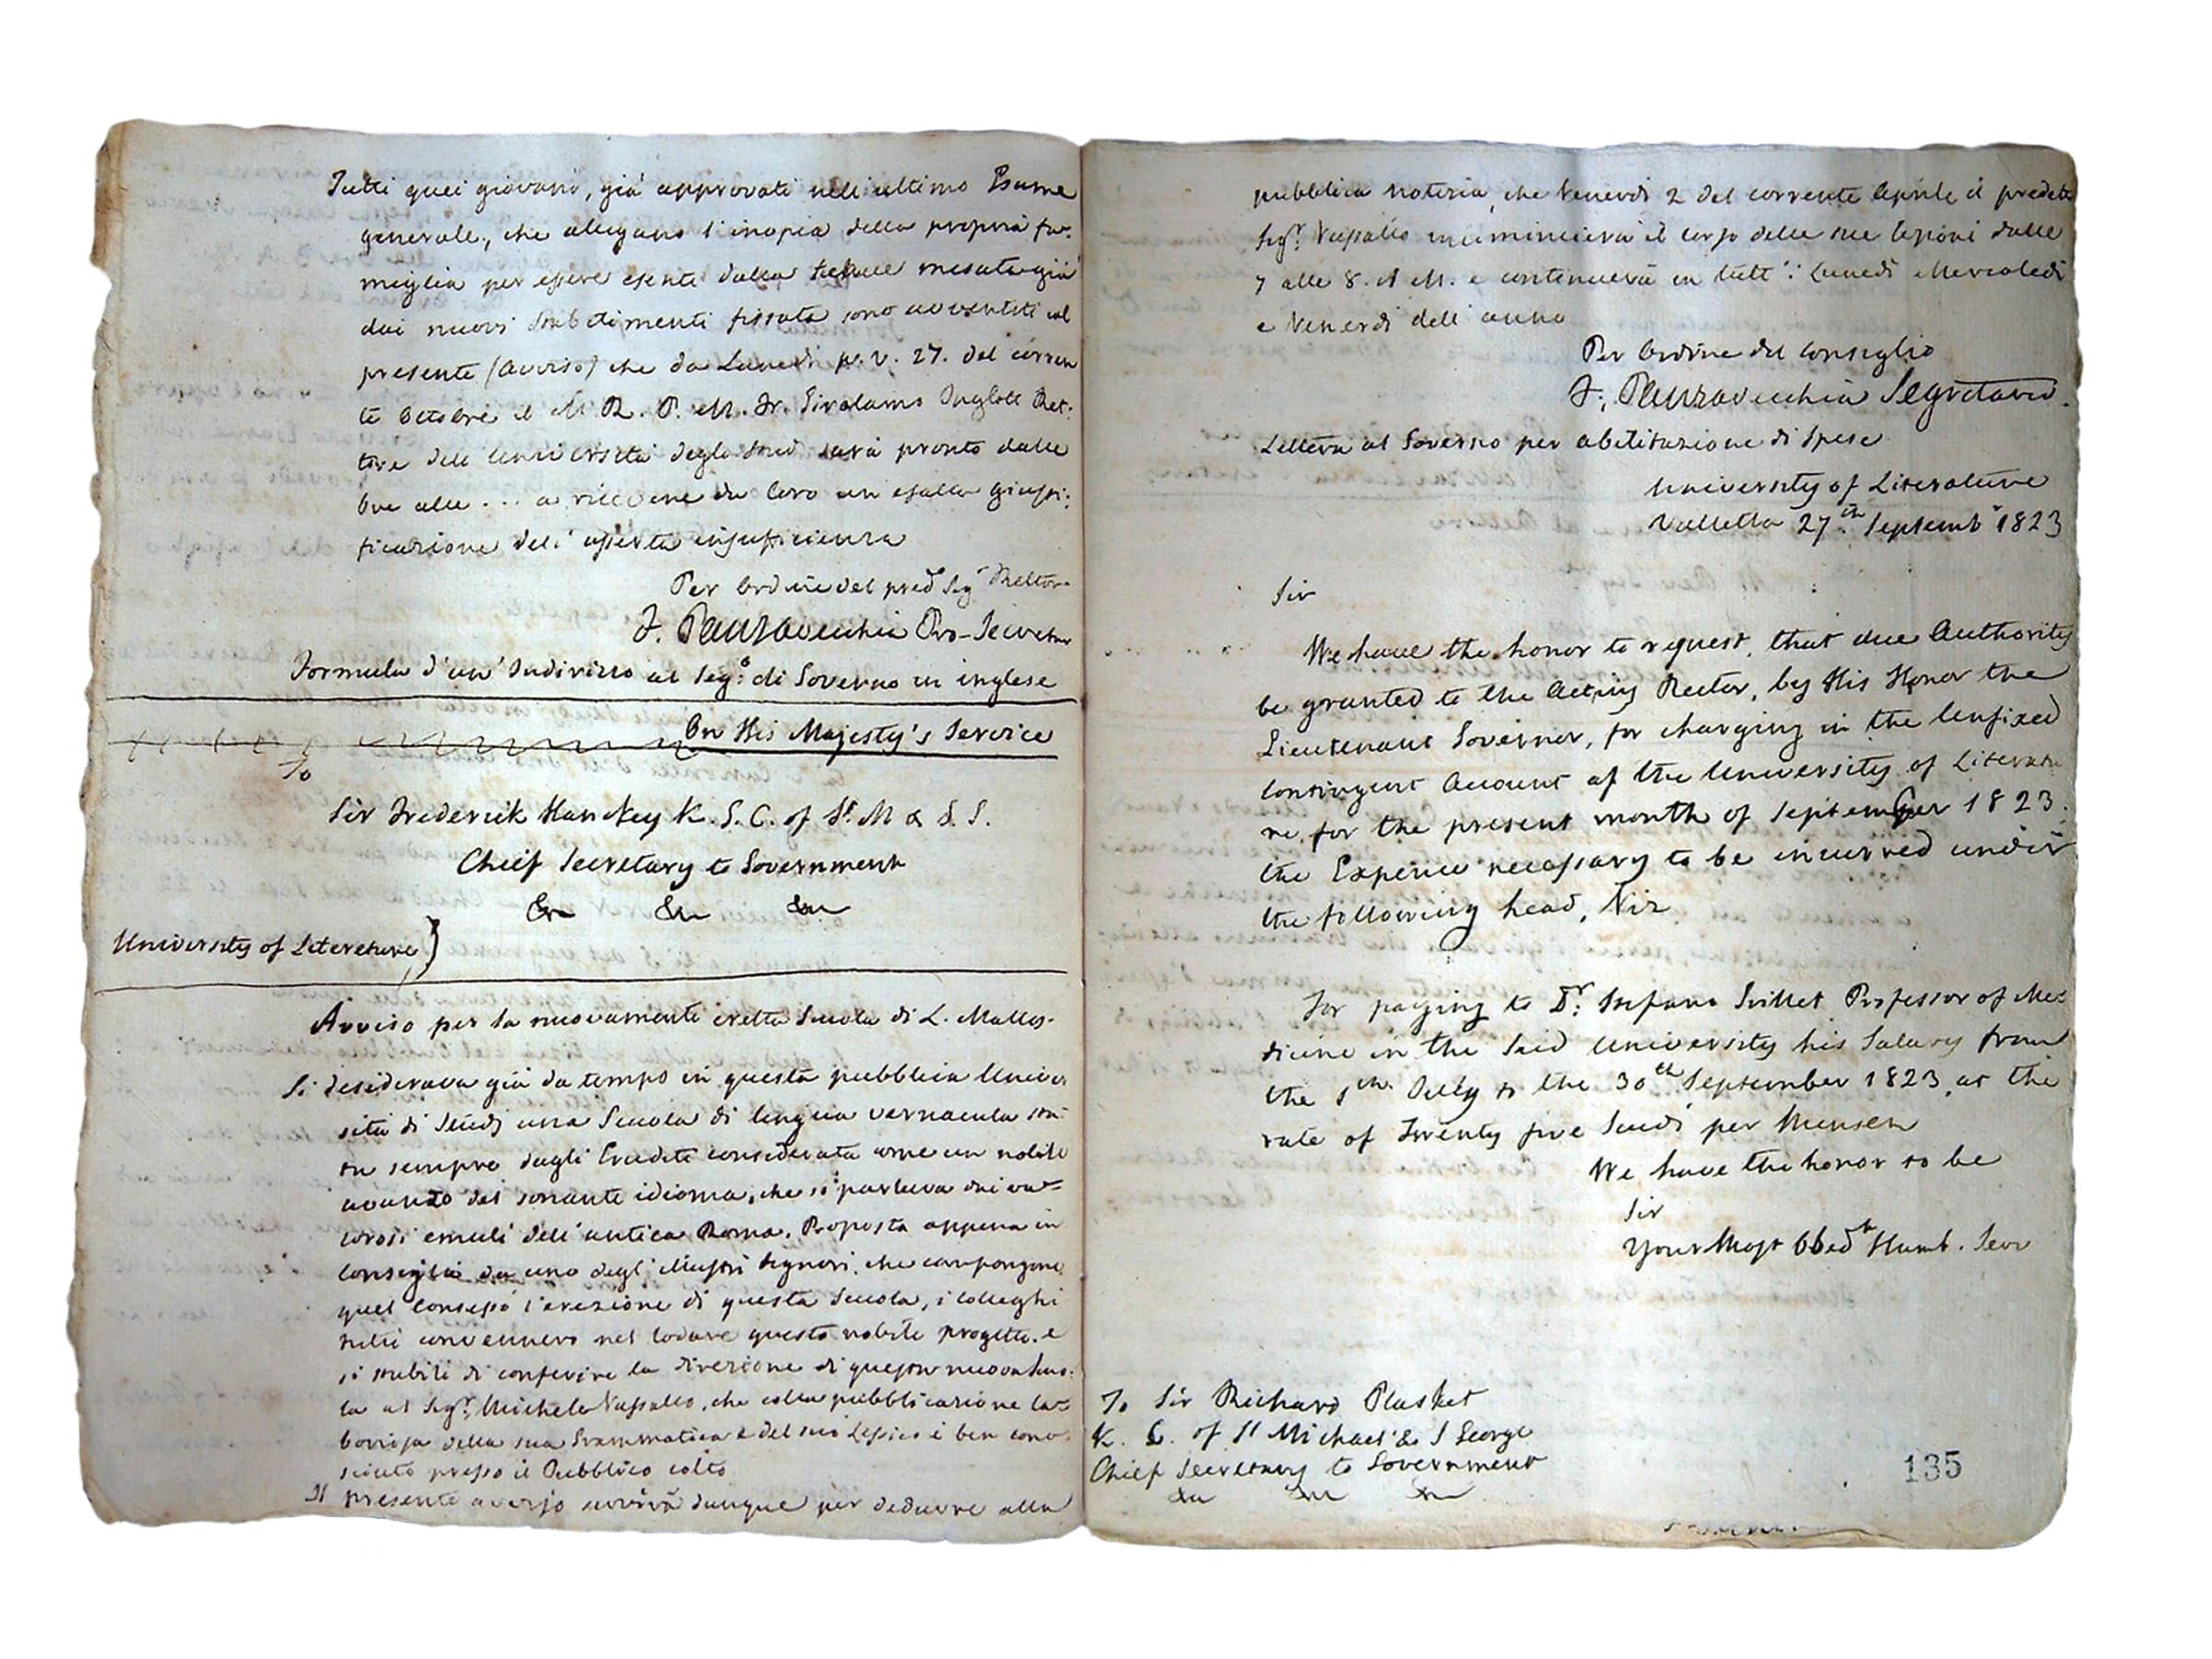 Tutti quei giovani, già approvati nell'ultimo Esame
generale, che allegano l'inopia della propria fa:
miglia per essere esenti dalla tenue mesata già
dai nuovi Stabilimenti fissata sono avvertiti col
presente (Avviso) che da Lunedì p.v. 27. del corren
te Ottobre il M R. P. M. Fr. Girolamo Inglott Ret:
tore dell'Università degli Studi sarà pronto dalle
Ore alle ... a ricevere da loro un esatta giusti:
ficazione dell'asserta insufficienza
Per Ordine del pred Sigr Rettore
F. Panzavecchia Pro-Secretar
Formula d'un'Indirizzo al Sego: di Governo in inglese
On His Majesty's Service
To
Sir Frederick Hankey K. G. C. of St. M & S. G.
Chief Secretary to Government
&c &c &c
University of Literature)
Avviso per la nuovamente eretta Scuola di L. Maltes.
Si desiderava già da tempo in questa pubblica Univer
sità di Studj una Scuola di lingua vernacula sta
ta sempre dagli Eruditi considerata come un nobile
avanzo del sonante idioma, che si parlava dai va=
lorosi emuli dell'antica Roma. Proposta appena in
Consiglio da uno degl'Illustri Signori, che compongono
quel Consesso l'erezione di questa Scuola, i Colleghi
tutti convennero nel lodare questo nobile progetto. e
si stabilì di conferire la direzione di questa nuova Scuo:
la al Sigr. Michele Vassallo, che colla pubblicazione la=
boriosa della sua Grammatica e del suo Lessico è ben cono
sciuto presso il Pubblico colto
Il presente avviso servirà dunque per dedurre alla
pubblica notizia, che Venerdì 2 del corrente Aprile il predetto
Sigr. Vassallo incomincierà il corso delle sue lezioni dalle
7 alle 8. A M. e continuerà in tutt'i Lunedì Mercoledì
e Venerdì dell'anno
Per Ordine del Consiglio
F. Panzavecchia Segretario.
Lettera al Governo per abilitazione di Spese
University of Literature
Valletta 27.th Septembr 1823
Sir
We have the honor to request, that due Authority
be granted to the Acting Rector, by His Honor the
Lieutenant Governor, for charging in the Unfixed
Contingent Account of the University of Literatu
re, for the present month of September 1823.
the Expence necessary to be incurred under
the following head, Viz
For paying to Dr. Stefano Grillet Professor of Me
dicine in the Said University his Salary from
the 1th July to the 30th September 1823, at the
rate of Twenty five Scudi per Mensem
We have the honor to be
Sir
Your Most Obedt Humb. Serv
To Sir Richard Plasket
K. C. of St Michael & S George
Chief Secretary to Government
&c &c &c
135